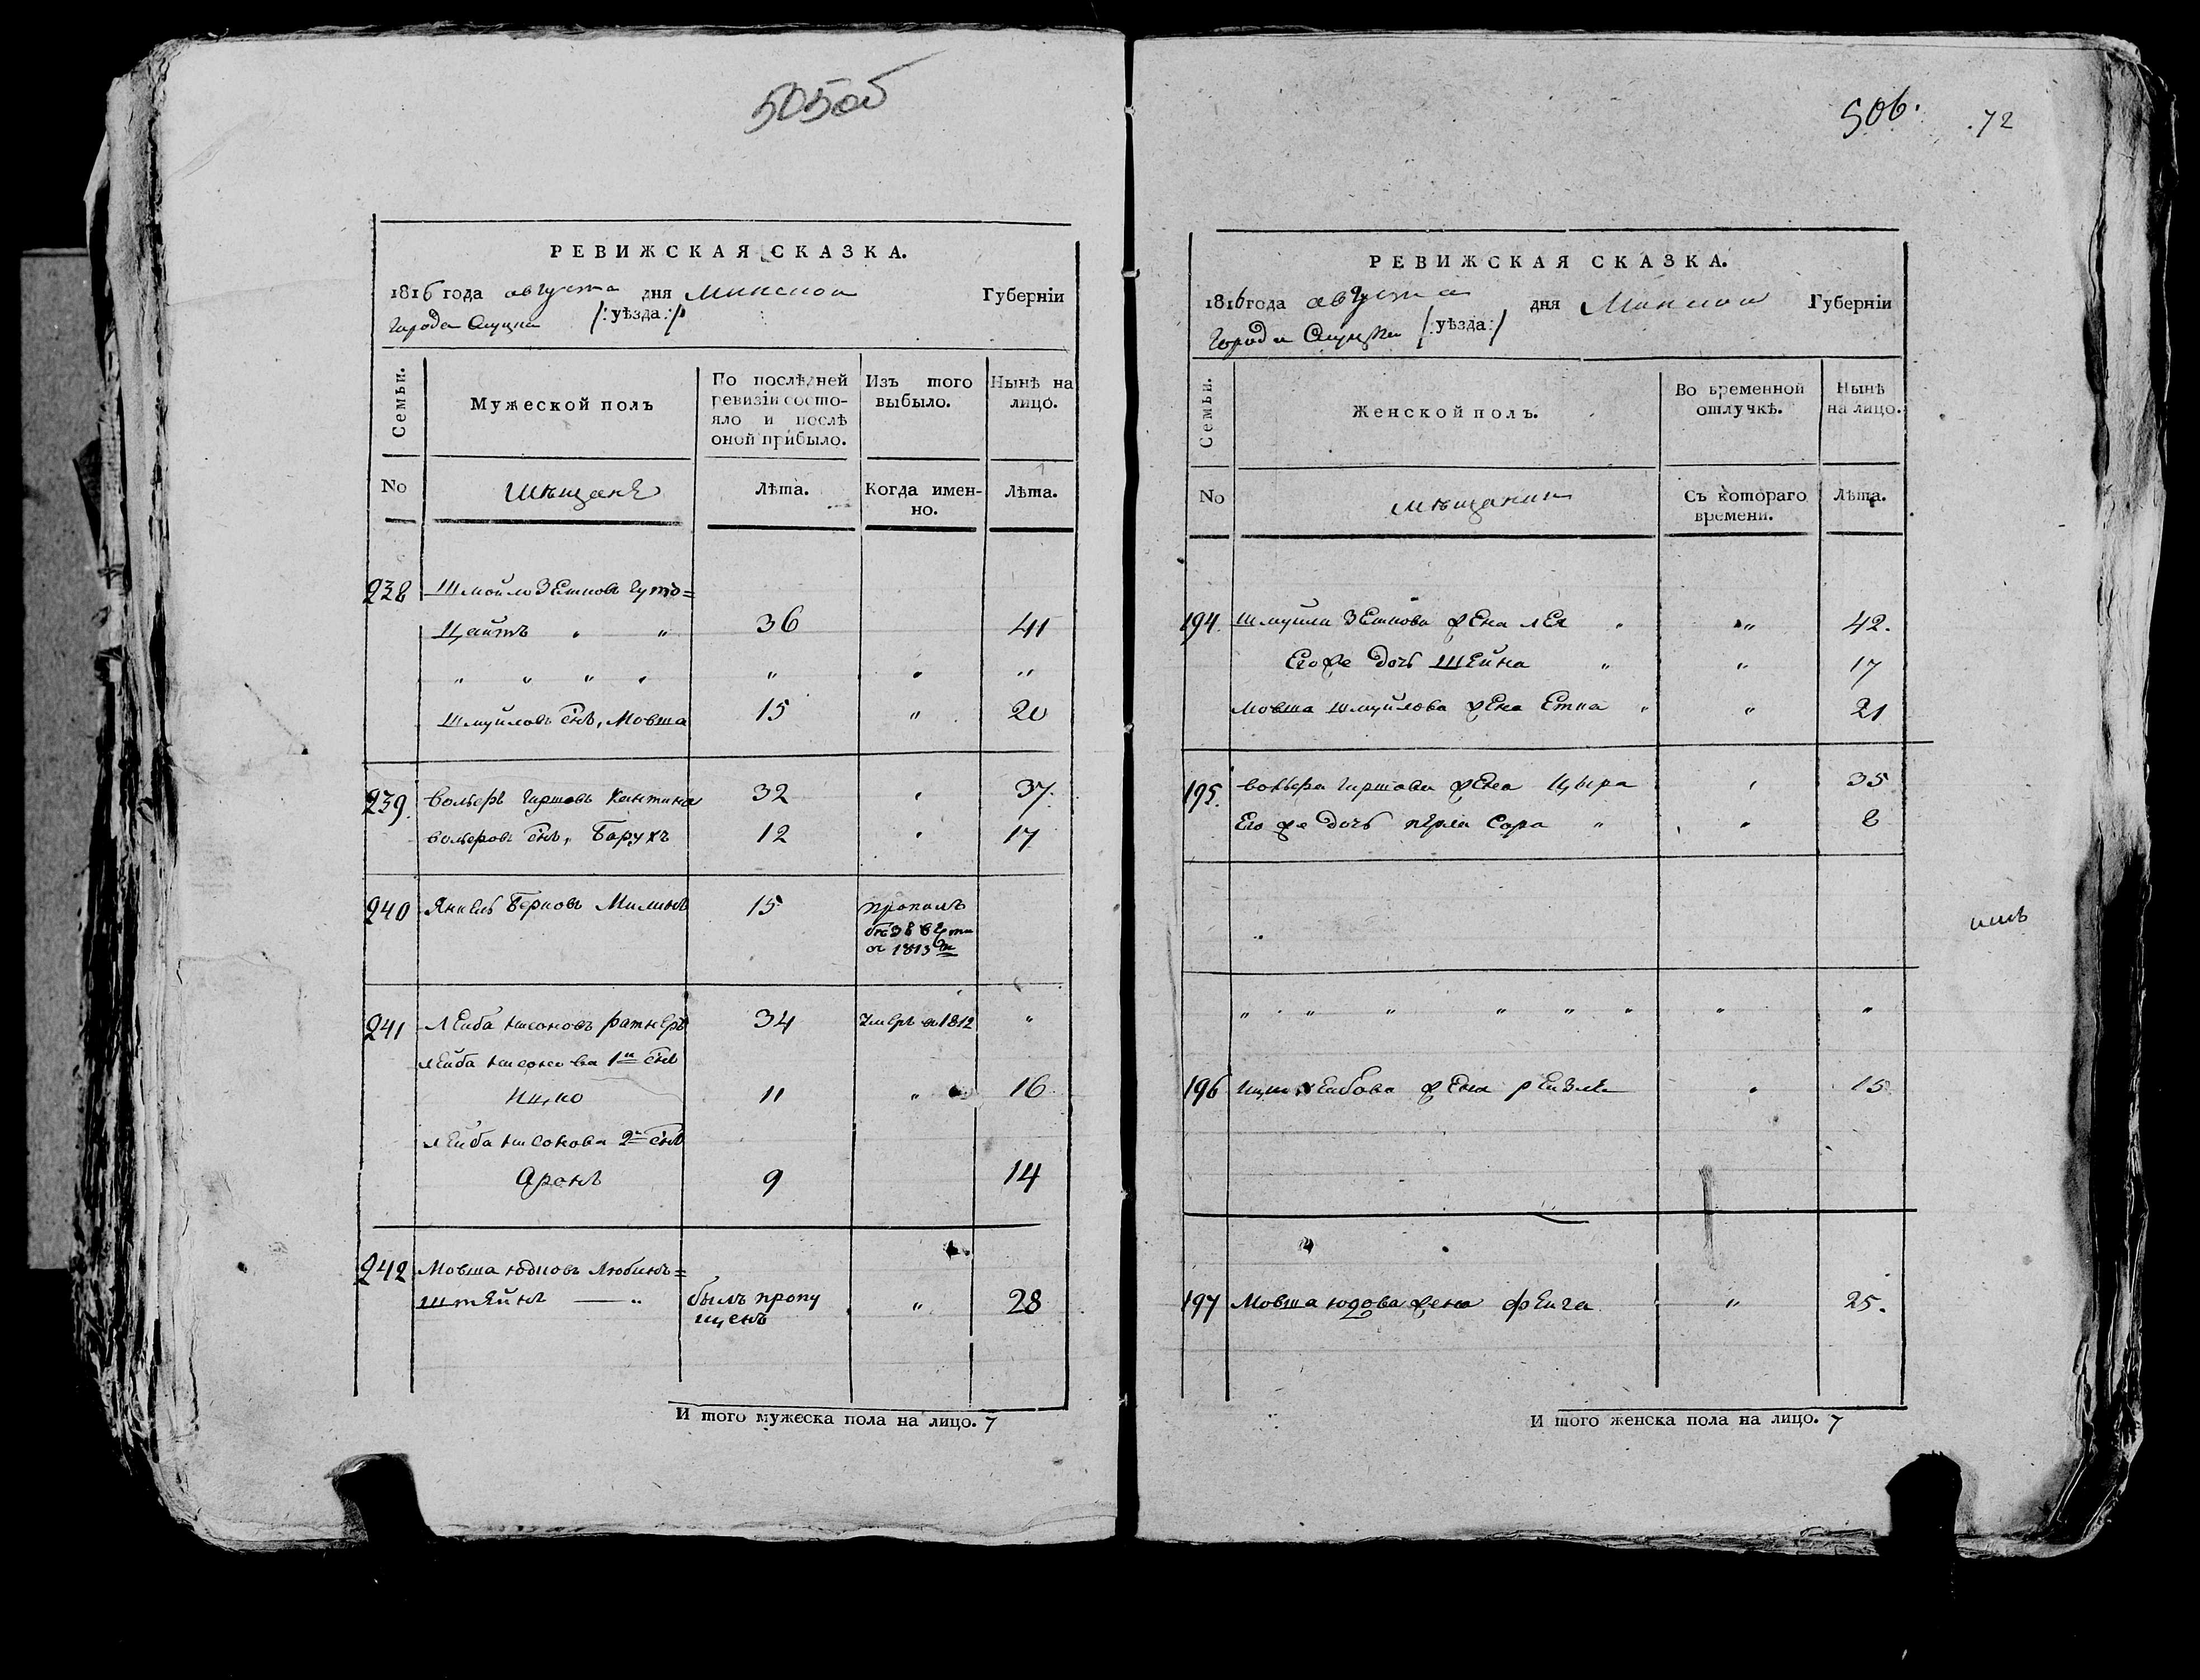 505об
РЕВИЖСКАЯ СКАЗКА.
1816 года августа дня Минской Губерніи
Города Слуцка /: уѣзда :/
Семьи.
Мужеской полъ
По послѣдней ревизіи состо-
яло и послѣ
оной прибыло.
Изъ того
выбыло.
Нынѣ на
лицо.
No
Мѣщане
Лѣта.
Когда имен-
но.
Лѣта.
238 Шмойло Зеликовъ Гуто=
Цайтъ " " 36 41
" " " " " " "
Шмуйловъ снъ, Мовша 15 " 20
239. Вольеръ Гиршовъ Кантина 32 " 37.
вольеровъ снъ, Барухъ 12 " 17
240 Янкель Берковъ Милинъ 15 пропалъ
с 1813 го
241 Лейба Нисоновъ Ратнеръ 34 Умеръ в 1812 "
Лейба Нисонова 1й снъ
Ицко 11 " 16
Лейба Нисонова 2й снъ
Аронъ 9 14
242 Мовша Юдковъ Любинъ=
штейнъ — " былъ пропу
щенъ " 28
И того мужеска пола на лицо. 7
506. 72
РЕВИЖСКАЯ СКАЗКА.
1816 года августа дня Минской Губерніи
Города Слуцка /: уѣзда :/
Семьи.
Женской полъ.
Во временной
отлучкѣ.
Нынѣ
на лицо.
No
мѣщанки
Съ котораго
времени.
Лѣта.
194. Шмуйли Зелікова жена Лея " " 42.
Его же дочь Шейна " " 17
Мовша Шмуйлова жена Етка " " 21
195. Вольера Гиршова жена Цыра " 35
Его же дочь Перла Сора " " 8
" " " " " " " "
196 Ицки Лейбова жена Рейзля " 15
197 Мовша Юдова жена Фейга " 25.
И того женска пола на лицо. 7